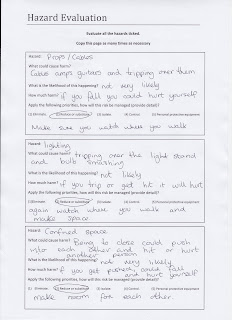 Hazard Evaluation
Evaluate all the hazards ticked.
Copy this page as many times as necessary
Hazard: Props / Cables
What could cause harm?
Cables amps guitars and tripping over them
What is the likelihood of this happening? not very likely
How much harm? if you fell you could hurt yourself
Apply the following priorities, how will this risk be managed (provide detail)?
(1) Eliminate (2) Reduce or substitute (3) Isolate (4) Control (5) Personal protective equipment
Make sure you watch where you walk
Hazard: lighting
What could cause harm? tripping over the light stand
and bulb smashing
What is the likelihood of this happening? not likely
How much harm? if you trip or get hit it will hurt
Apply the following priorities, how will this risk be managed (provide detail)?
(1) Eliminate (2) Reduce or substitute (3) Isolate (4) Control (5) Personal protective equipment
again watch where you walk and
make space
Hazard: Confined space
What could cause harm? Being to close could push
into each other and hit or hurt
another person
What is the likelihood of this happening? not very likely
How much harm? if you get pushed, could fall
and hurt yourself
Apply the following priorities, how will this risk be managed (provide detail)?
(1) Eliminate (2) Reduce or substitute (3) Isolate (4) Control (5) Personal protective equipment
make room for each other